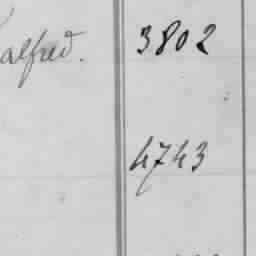 alfred. 3802
4743